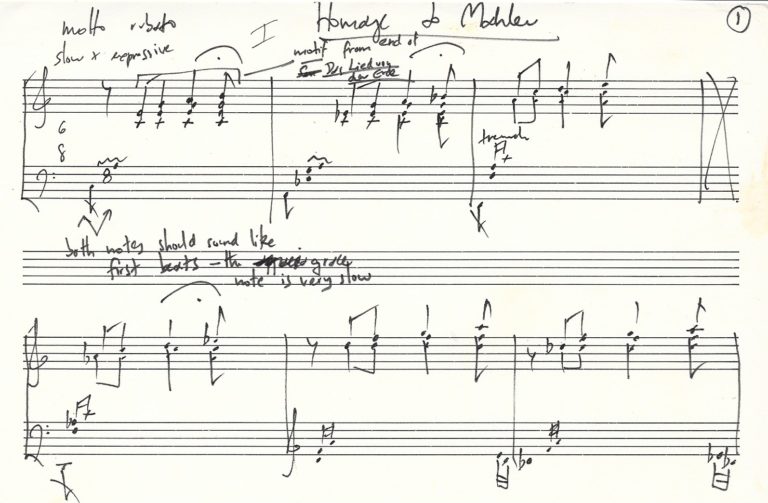 molto rubato
slow + expressive
I
Homage to Mahler
1
motif from end of
Das Lied von
der Erde
6
8
tremolo
both notes should sound like
first beats – the grace
note is very slow